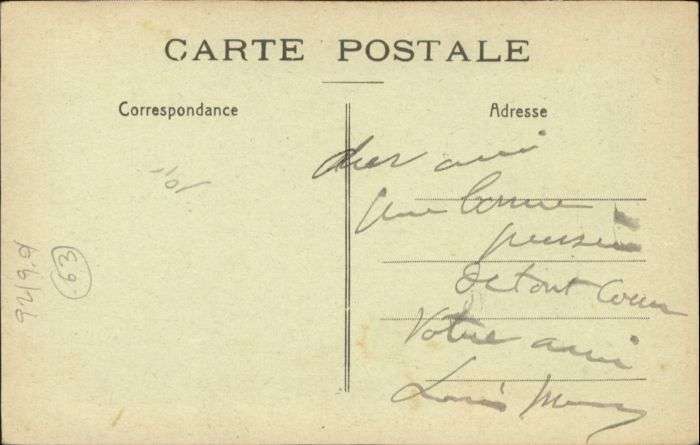 CARTE POSTALE
Correspondance
Adresse
cher ami
Une bonne
pensée
de tout coeur
Votre ami
Louis
63